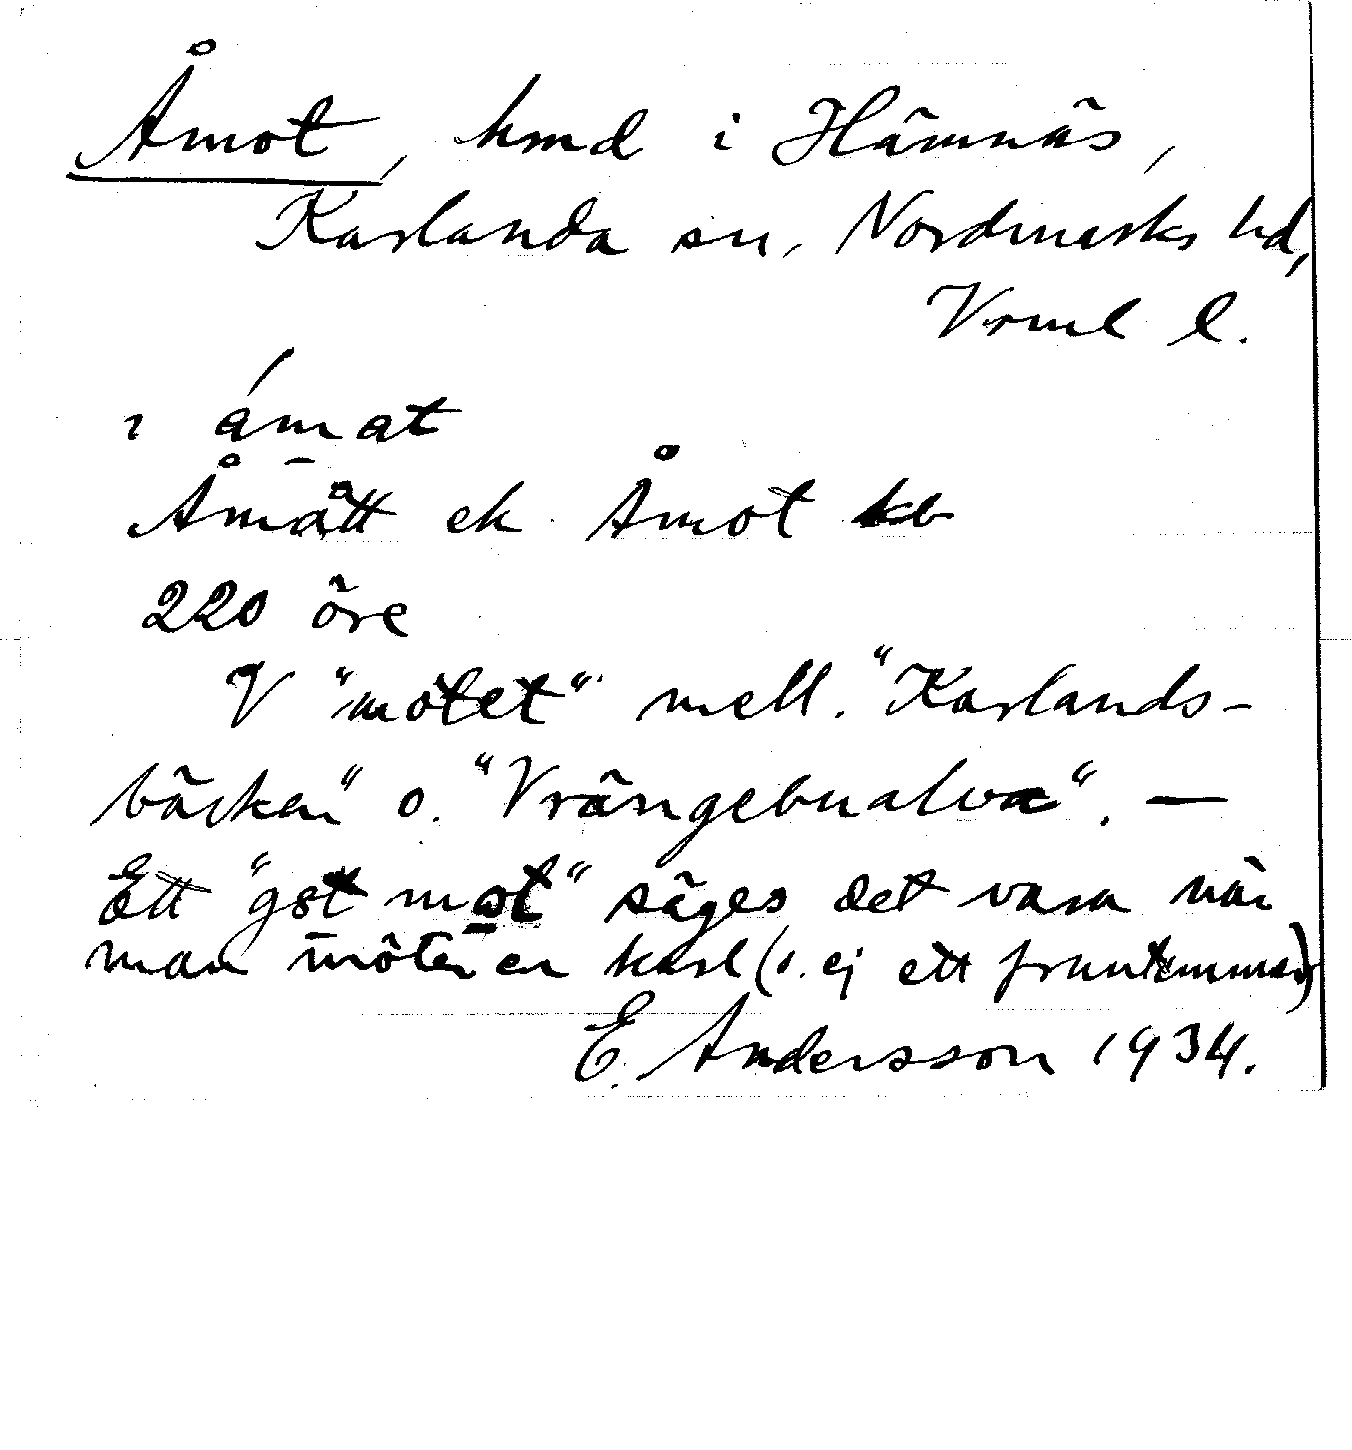 Åmot, hmd i Hämnäs,
Karlanda sn, Nordmarks hd,
Vrml l.
i åmat
Åmått ek Åmot kb
220 öre
V "mötet" mell. "Karlands-
bäcken" o. "Vrängebualva". —
Ett "gŏt mot" säges det vara när
man möter en karl (o. ej ett fruntimmer)
E. Andersson 1934.